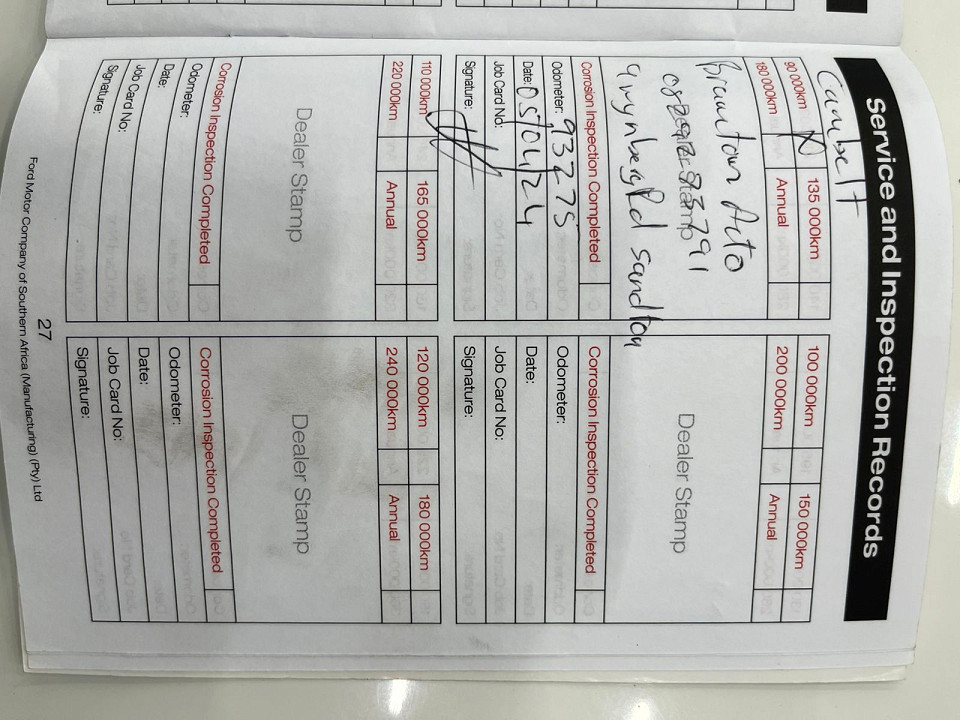 Service and Inspection Records
Cambelt
90 000km X 135 000km
180 000km Annual
Braunton Auto
Dealer Stamp
Grynberg Rd sandton
Corrosion Inspection Completed
Odometer: 93275
Date: 05/04/24
Job Card No:
Signature:
100 000km 150 000km
200 000km Annual
Dealer Stamp
Corrosion Inspection Completed
Odometer:
Date:
Job Card No:
Signature:
110 000km 165 000km
220 000km Annual
Dealer Stamp
Corrosion Inspection Completed
Odometer:
Date:
Job Card No:
Signature:
120 000km 180 000km
240 000km Annual
Dealer Stamp
Corrosion Inspection Completed
Odometer:
Date:
Job Card No:
Signature:
27
Ford Motor Company of Southern Africa (Manufacturing) (Pty) Ltd